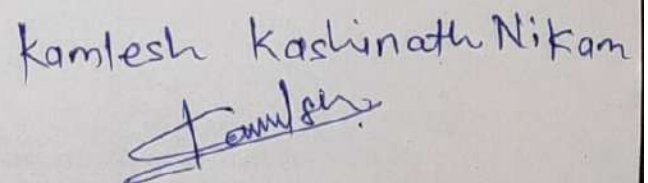 Kamlesh Kashinath Nikam
Kamlesh